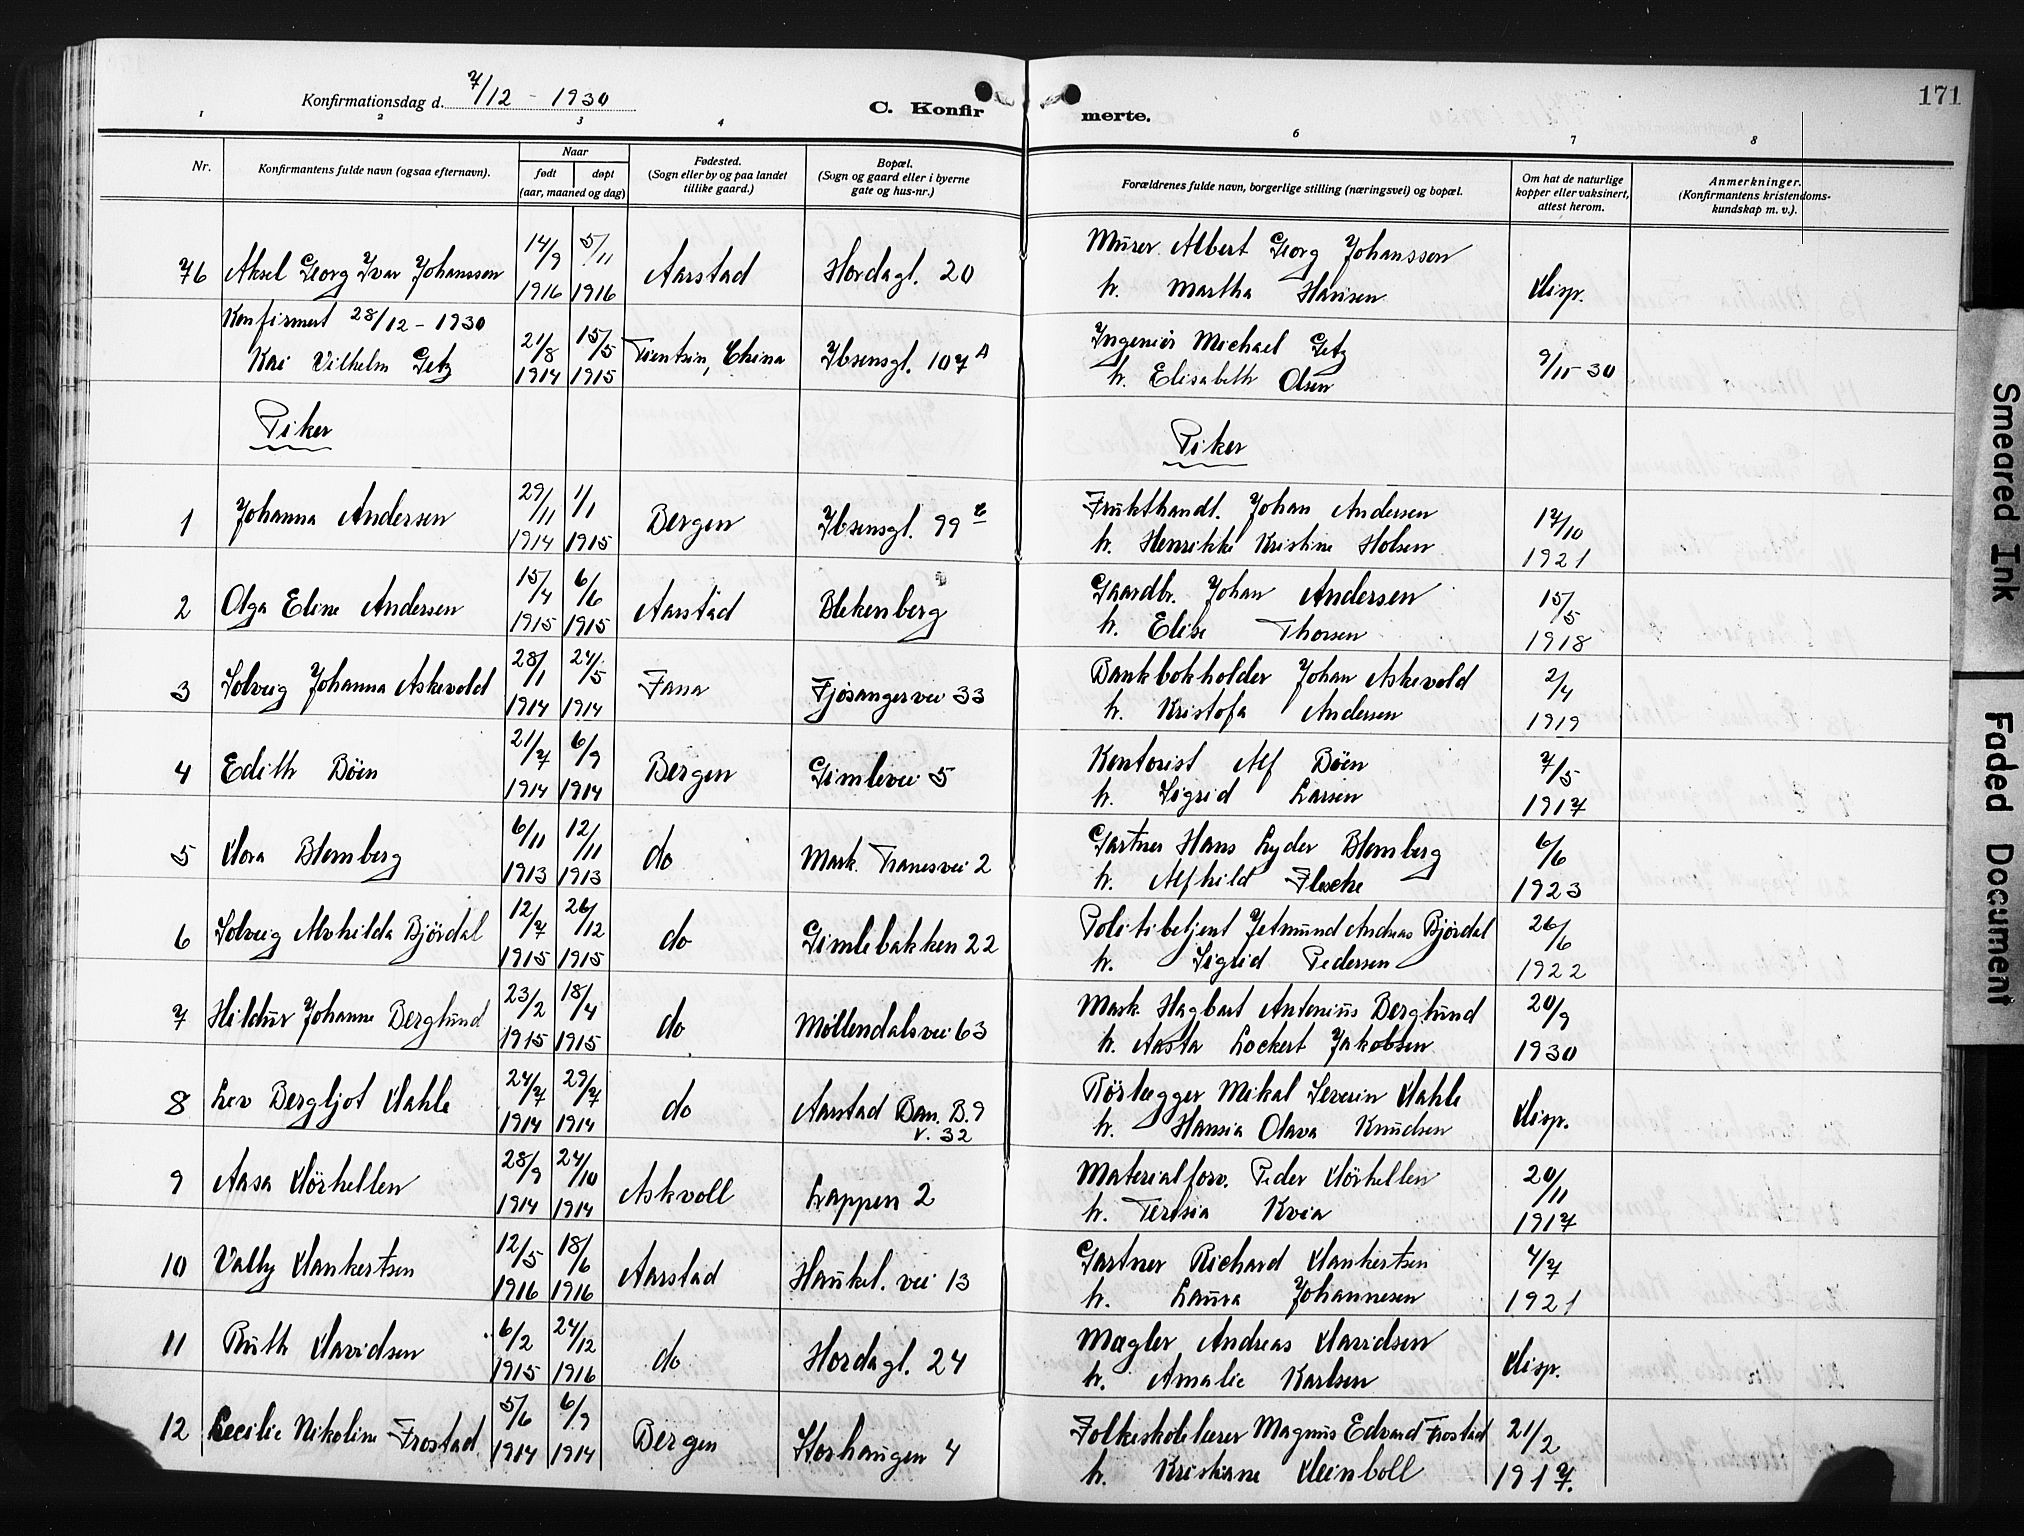 Konfirmationsdag d. 7/12 - 1930
C. Konfirmerte.
171
1 2 3 4 6 7 8
Nr.
Konfirmantens fulde navn (ogsaa efternavn).
Naar
født døpt
(aar, maaned og dag)
Fødested.
(Sogn eller by og paa landet
tillike gaard.)
Bopæl.
(Sogn og gaard eller i byerne
gate og hus-nr.)
Forældrenes fulde navn, borgerlige stilling (næringsvei) og bopæl.
Om hat de naturlige
kopper eller vaksinert,
attest herom.
Anmerkninger.
(Konfirmantens kristendoms-
kundskap m. v.).
76 Aksel Georg Ivar Johanssen 14/9 1916 5/11 1916 Aarstad Hordagt. 20 Murer Albert Georg Johanssen
h. Martha Hansen Disp.
Konfirmert 28/12 - 1930
Kai Vilhelm Getz 21/8 1914 15/5 1915 Tientsin, China Ibsensgt. 107 A Ingeniör Michael Getz
h. Elisabeth Olsen 9/11-30
Piker
Piker
1 Johanna Andersen 29/11 1914 1/1 1915 Bergen Ibsensgt. 99 Frukthandl. Johan Andersen
h. Henrikke Kristine Holsen 17/10 1921
2 Olga Eline Andersen 15/4 1915 6/6 1915 Aarstad Blekenberg Gaardbr. Johan Andersen
h. Elise Thorsen 15/5 1918
3 Solveig Johanna Askevold 28/1 1914 24/5 1914 Fana Fjösangervei 33 Bankbokholder Johan Askevold
h. Kristofa Andersen 2/4 1919
4 Edith Böen 21/7 1914 6/9 1914 Bergen Gimlevei 5 Kontorist Alf Böen
h. Sigrid Larsen 7/5 1917
5 Dora Blomberg 6/11 1913 12/11 1913 do Mark. Tranesvei 2 Gartner Hans Lyder Blomberg
h. Alfhild Flesche 6/6 1923
6 Solveig Alvhilda Björdal 12/7 1915 26/12 1915 do Gimlebakken 22 Politibetjent Jetmund Andreas Björdal
h. Sigrid Pedersen 26/6 1922
7 Hildur Johanne Berglund 23/2 1915 18/4 1915 do Møllendalsvei 63 Mask. Hagbart Antonius Berglund
h. Aasta Lockert Jakobsen 20/9 1930
8 Liv Bergljot Dahle 24/7 1914 29/7 1914 do Aarstad Ban. B. 9
v. 32
Rörlægger Mikal Severin Dahle
h. Hansia Olava Knudsen Disp.
9 Aasa Dörhellen 28/9 1914 24/10 1914 Askvoll Lappen 2 Materialforv. Peder Dörhellen
h. Teresia Kvia 20/11 1917
10 Vally Dankertsen 12/5 1916 18/6 1916 Aarstad Haukel. vei 13 Gartner Richard Dankertsen
h. Laura Johannesen 4/7 1921
11 Ruth Davidsen 6/2 1915 24/12 1916 do Hordagt. 24 Megler Andreas Davidsen
h. Amalie Karlsen Disp.
12 Cecilie Nikoline Frostad 5/6 1914 6/9 1914 Bergen Storhaugen 4 Folkeskolelærer Magnus Edvard Frostad
h. Kristiane Deinboll 21/2 1917.
Smeared Ink
Faded Document